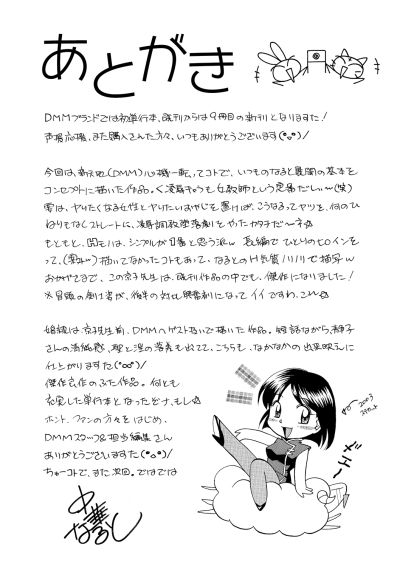 あとがき
DMMブランドでは初単行本、既刊からは9冊目の新刊となります!
声援応援、また購入された方々、いつもありがとうございます(°o°)/
今回は、新天地(DMM)心機一転ってコトで、いつものなると展開の基本を
コンセプトに描いた作品。
実は、ヤりたくなる女性とヤりたいおやじを置けば、こうなるってヤツを、何の
ひねりもなくストレートに、凌辱調教堕落劇をやったカタチだーネ
もともと、間モノは、シンプルが1番と思う派w 長編で ひとりのヒロインを
って、描いてなかったコトもあって、なるとのH気質ノリノリで描写w
おかげさまで、この京子先生は、既刊作品の中でも、傑作になりました!
※冒頭の剣士者が、後半の対比興奮剤になって イイですわ、これ
姉緑は京子先生前、DMMへゲスト扱いで描いた作品。短話ながら、静子
さんの清純感、理と淫の落差も出てて、こちらも、なかなかの出来映えに
仕上がりますた(°∞°)/
傑作良作のふた作品。何とも
充実した単行本となったどナ、もし
ホント、ファンの方々をはじめ、
DMMスタッフ&担当編集さん
ありがとうございますた(°o°)/
ちゅーコトで、また次回。ではでは
中華なると
2003
メットー